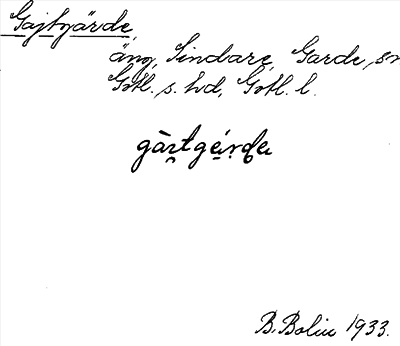 Gajtgärde,
äng, Sindarve, Garde, sn
Gotl. s. hd, Gotl. l.
B. Bolin 1933.